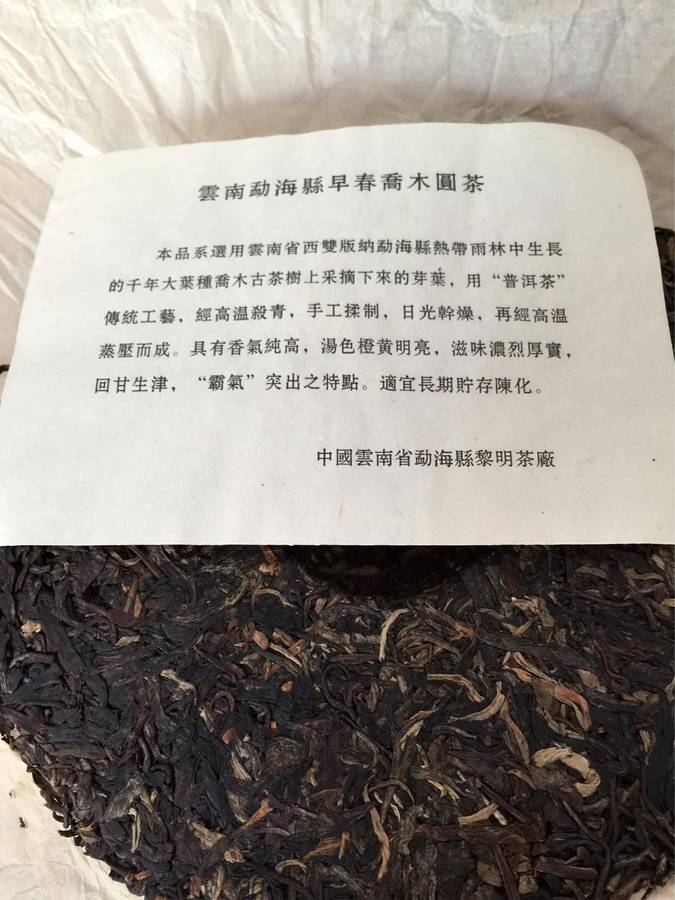 雲南勐海縣早春喬木圓茶
本品系選用雲南省西雙版納勐海縣熱帶雨林中生長
的千年大葉種喬木古茶樹上采摘下來的芽葉，用“普洱茶”
傳統工藝，經高温殺青，手工揉制，日光幹燥，再經高温
蒸壓而成。具有香氣純高，湯色橙黄明亮，滋味濃烈厚實，
回甘生津，“霸氣”突出之特點。適宜長期貯存陳化。
中國雲南省勐海縣黎明茶廠